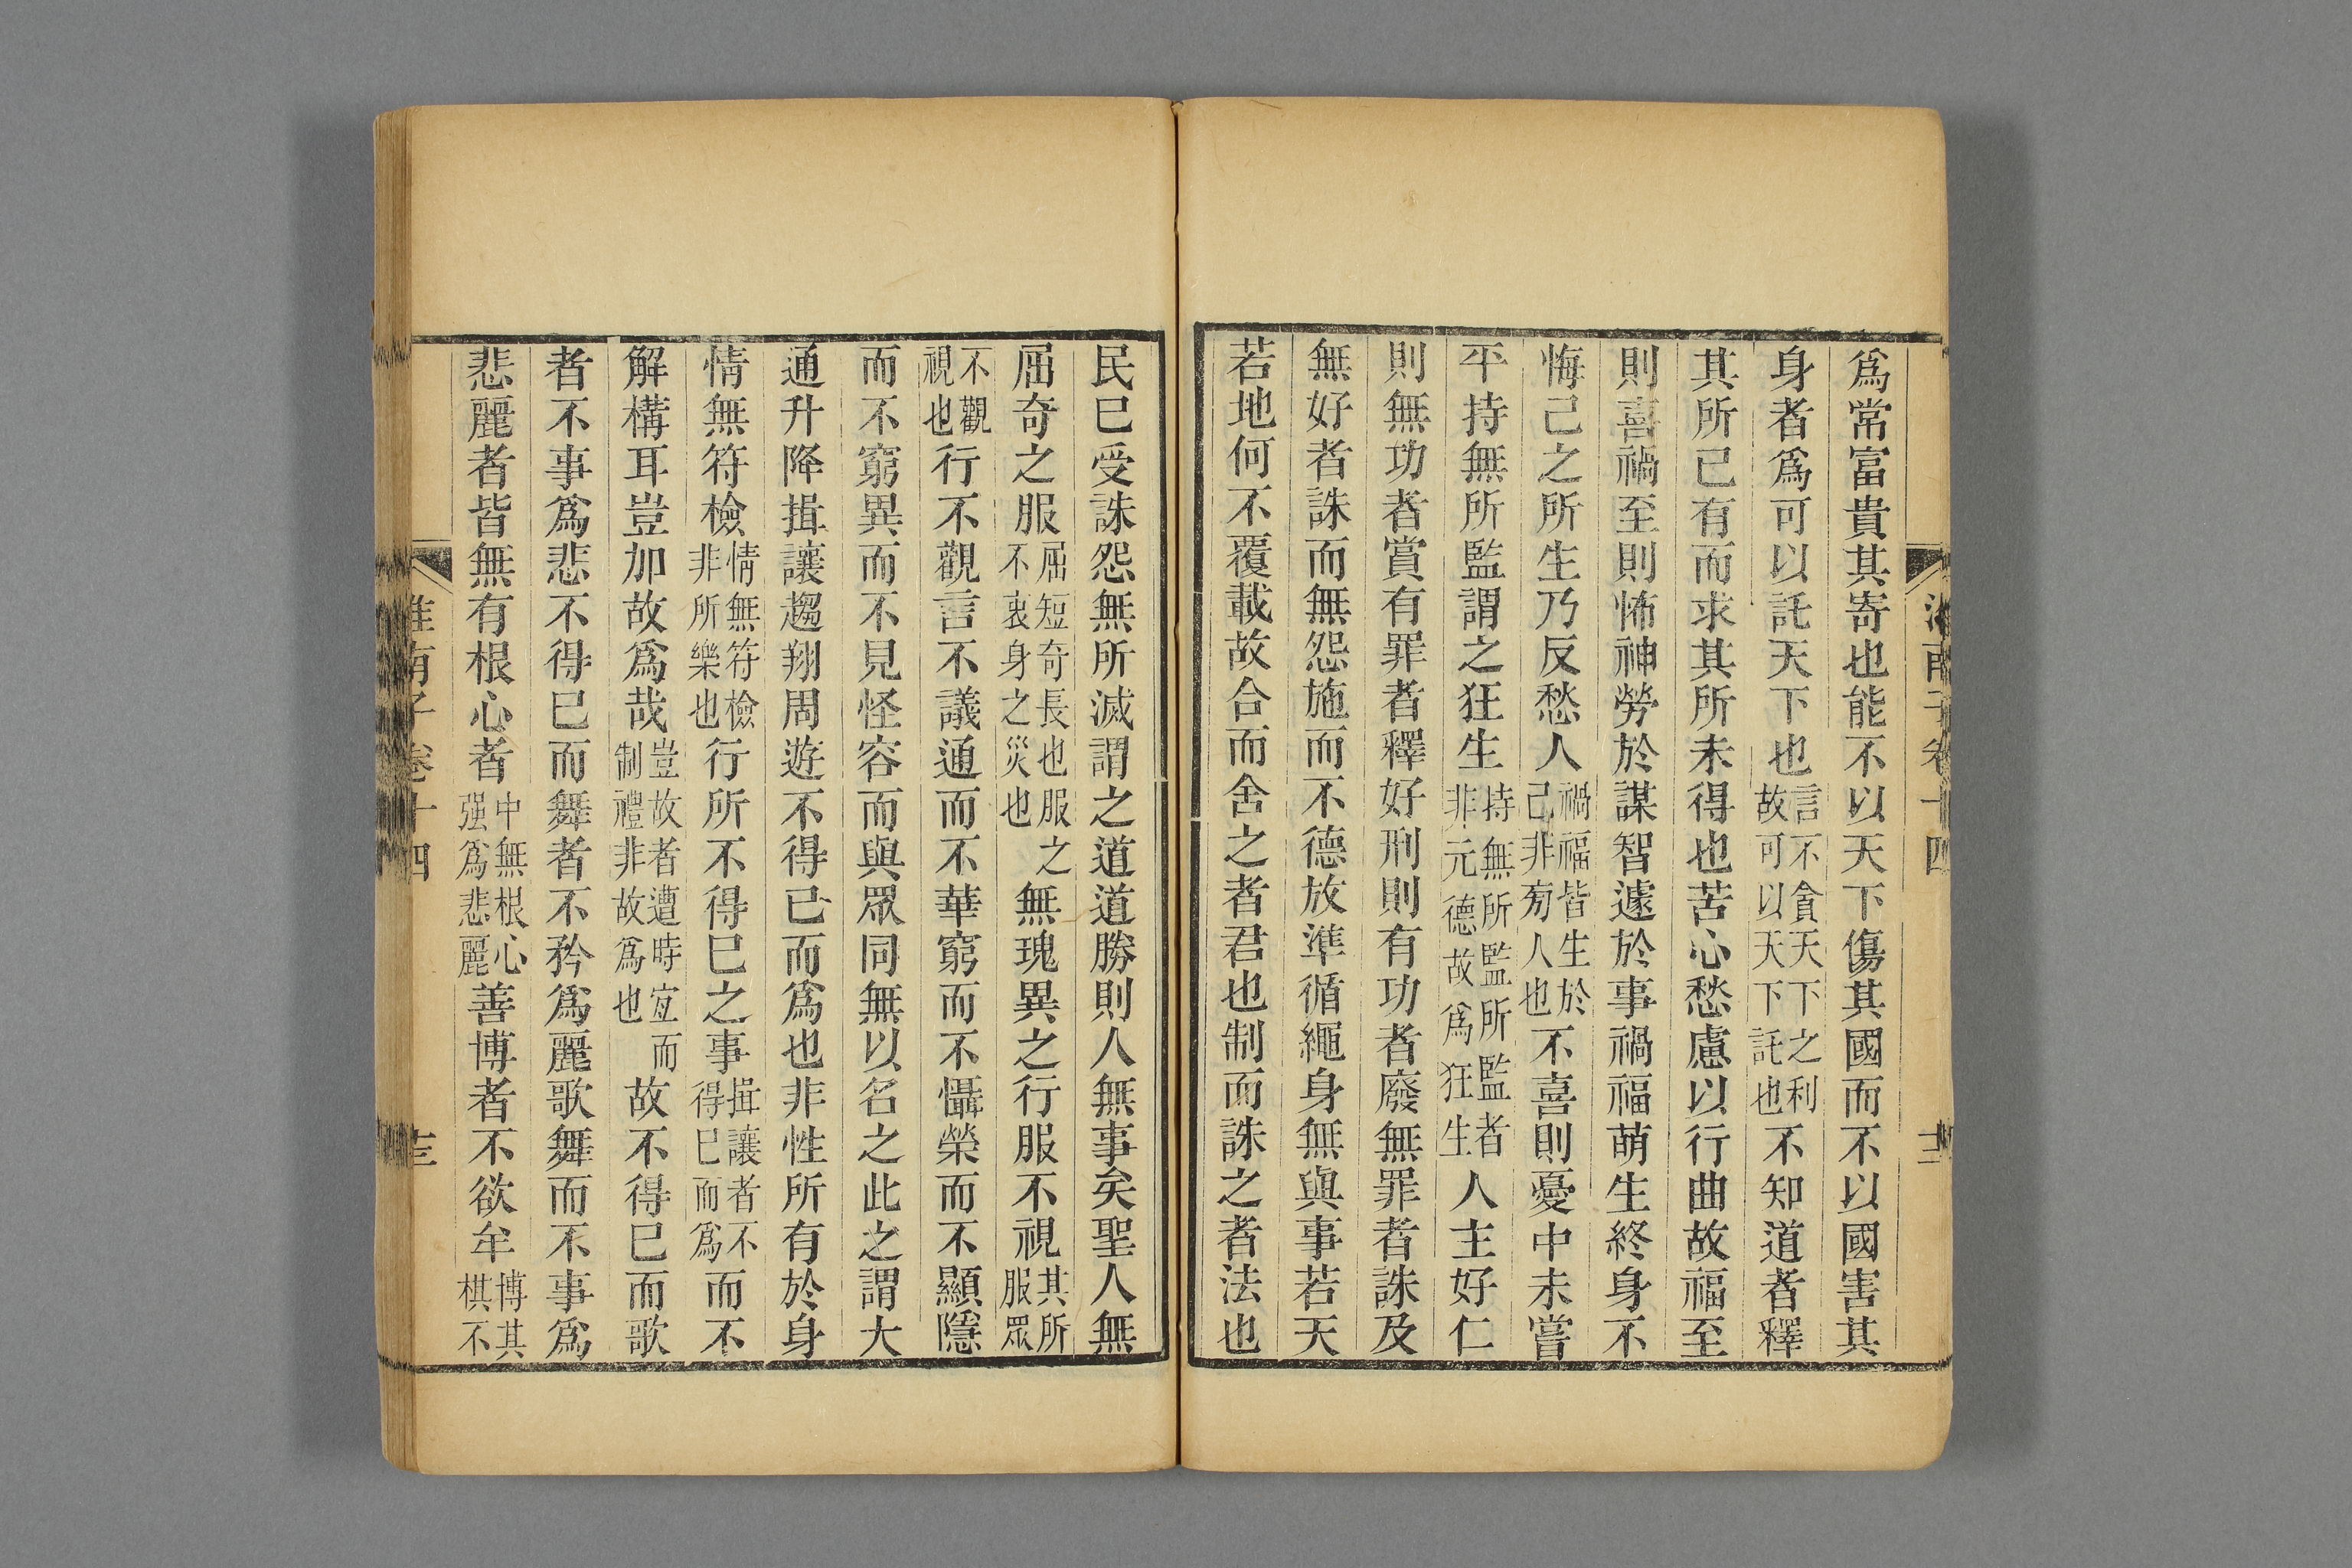 淮南子卷十四 十二
爲常富貴其寄也能不以天下傷其國而不以國害其
身者爲可以託天下也言不貪天下之利故可以天下託也不知道者釋
其所已有而求其所未得也苦心愁慮以行曲故福至
則喜禍至則怖神勞於謀智遽於事禍福萌生終身不
悔己之所生乃反愁人禍福皆生於己非旁人也不喜則憂中未嘗
平持無所監謂之狂生持無所監所監者非元德故爲狂生人主好仁
則無功者賞有罪者釋好刑則有功者廢無罪者誅及
無好者誅而無怨施而不德放準循繩身無與事若天
若地何不覆載故合而舍之者君也制而誅之者法也
民已受誅怨無所滅謂之道道勝則人無事矣聖人無
屈奇之服屈短奇長也服之不衷身之災也無瑰異之行服不視其所服眾
不觀視也行不觀言不議通而不華窮而不懾榮而不顯隱
而不窮異而不見怪容而與眾同無以名之此之謂大
通升降揖讓趨翔周遊不得已而爲也非性所有於身
情無符檢情無符檢非所樂也行所不得已之事揖讓者不得已而爲而不
解構耳豈加故爲哉豈故者遭時宐而制禮非故爲也故不得已而歌
者不事爲悲不得已而舞者不矜爲麗歌舞而不事爲
悲麗者皆無有根心者中無根心强爲悲麗善博者不欲牟博其棋不
淮南子卷十四 十三